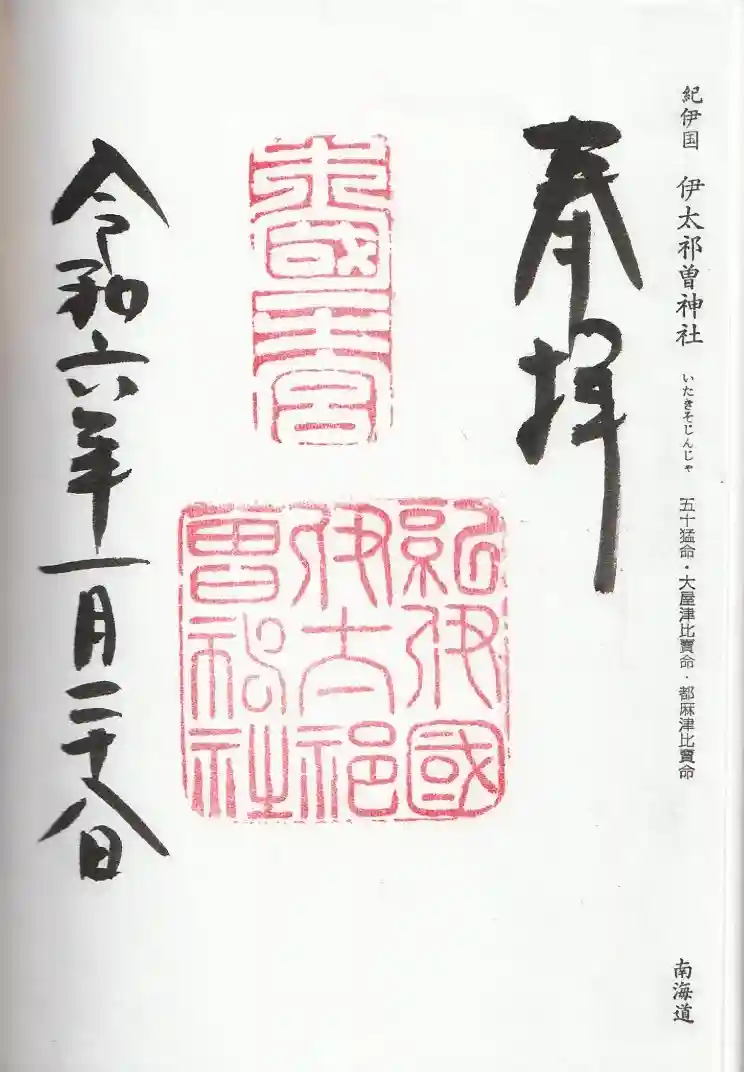 紀伊国 伊太祁曽神社 いたきそじんじゃ 五十猛命・大屋津比賣命・都麻津比賣命
南海道
奉拝
木國一之宮
紀伊國
伊太祁
曽神社
令和六年一月二十八日